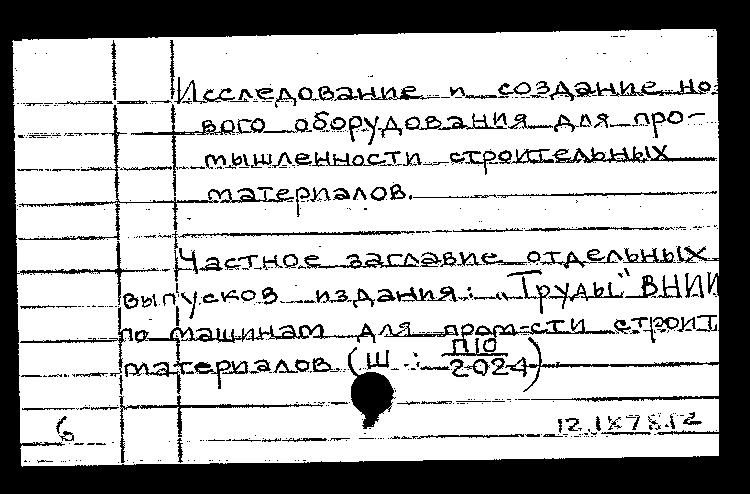 Исследование и создание но-
вого оборудования для про-
мышленности строительных
материалов.
Частное заглавие отдельных
выпусков издания: "Труды" ВНИИ
по машинам для пром-сти строит.
материалов (Ш : П10/2024)
6